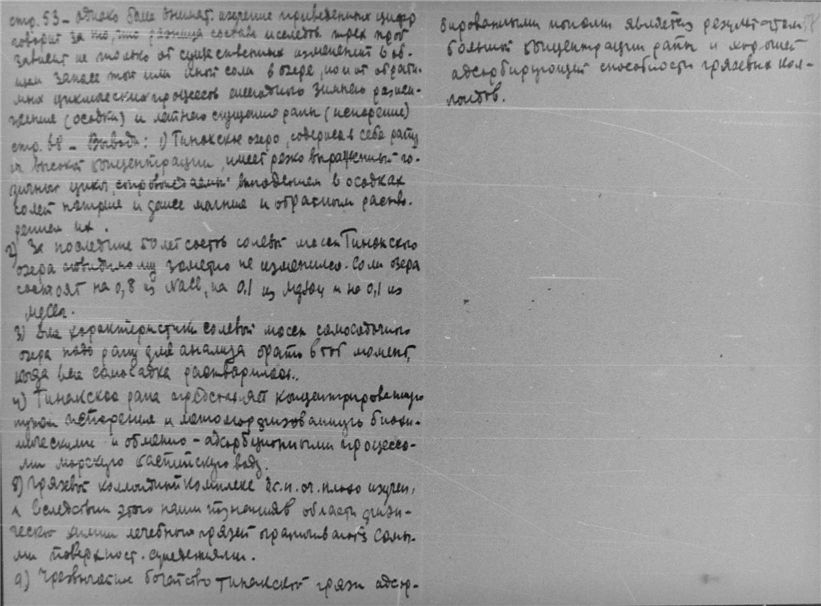 стр. 53 – однако более внимат. изучение приведенных цифр
говорит за то, что разница состава и солей трех проб
зависит не только от существенных изменений в об-
щем запасе той или иной соли в озере, но и от обрати-
мых циклических процессов ежегодного зимнего разжи-
жения (осадки) и летнего сгущения рапы (испарение)
стр. 68 – Выводы: 1) Тинакское озеро, содержа в себе рапу
высокой концентрации, имеет резко выраженный го-
дичный цикл, сопровождаемый выпадением в осадках
солей натрия и даже магния и обратным раство-
рением их.
2) За последние 50 лет состав солевой массы Тинакского
озера заметно не изменился. Соли озера
состоят на 0,8 из NaCl, на 0,1 из MgSO4 и на 0,1 из
MgCl2.
3) Для характеристики солевой массы самосадочного
озера надо рапу для анализа брать в тот момент,
когда вся самосадка растворилась.
4) Тинакская рапа представляет концентрированную
путем испарения и метаморфизованную биохи-
мическими и обменно-адсорбционными процесса-
ми морскую каспийскую воду.
8) Грязевой коллоидный комплекс плохо изучен,
вследствии этого наши познания в области физи-
ческой химии лечебных грязей ограничиваются самы-
ми поверхност. суждениями.
9) Чрезвычайное богатство Тинакской грязи адсор-
бированными ионами является результатом
большой концентрации рапы и хорошей
адсорбирующей способности грязевых кол-
лоидов.